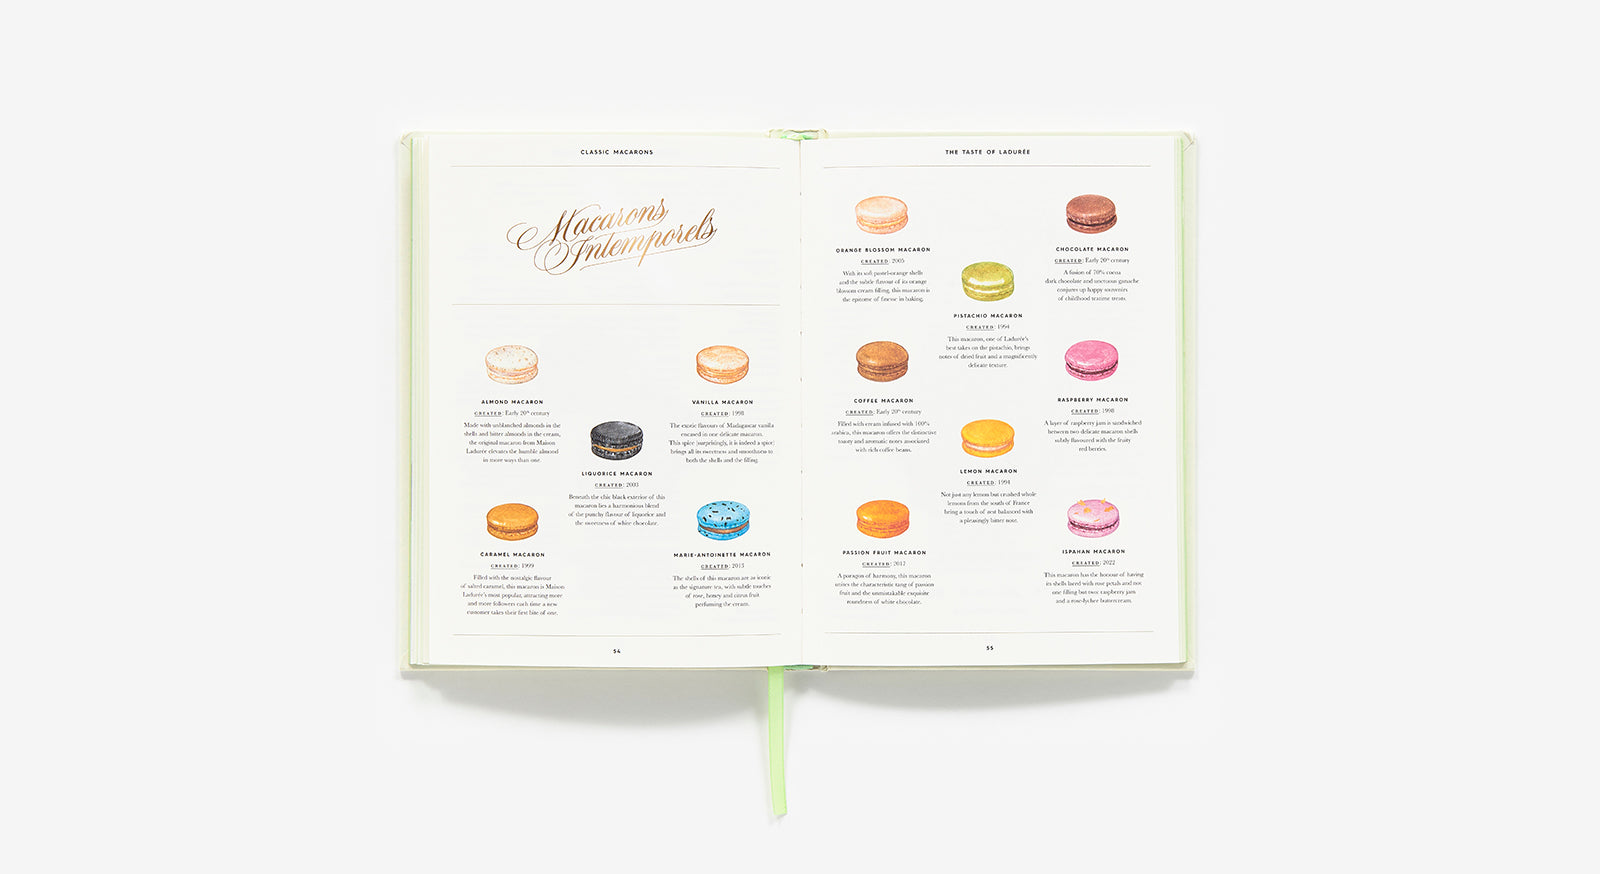 CLASSIC MACARONS
Macarons
Intemporels
ALMOND MACARON
CREATED: Early 20th century
Made with unblanched almonds in the
shells and bitter almonds in the cream,
the original macaron from Maison
Ladurée elevates the humble almond
in more ways than one.
VANILLA MACARON
CREATED: 1998
The exotic flavours of Madagascar vanilla
encased in one delicate macaron.
This spice (surprisingly, it is indeed a spice)
brings all its sweetness and smoothness to
both the shells and the filling.
LIQUORICE MACARON
CREATED: 2003
Beneath the chic black exterior of this
macaron lies a harmonious blend
of the punchy flavour of liquorice and
the sweetness of white chocolate.
CARAMEL MACARON
CREATED: 1999
Filled with the nostalgic flavour
of salted caramel, this macaron is Maison
Ladurée's most popular, attracting more
and more followers each time a new
customer takes their first bite of one.
MARIE-ANTOINETTE MACARON
CREATED: 2013
The shells of this macaron are as iconic
as the signature tea, with subtle touches
of rose, honey and citrus fruit
perfuming the cream.
54
THE TASTE OF LADURÉE
ORANGE BLOSSOM MACARON
CREATED: 2005
With its soft pastel-orange shells
and the subtle flavour of its orange
blossom cream filling, this macaron is
the epitome of finesse in baking.
CHOCOLATE MACARON
CREATED: Early 20th century
A fusion of 70% cocoa
dark chocolate and unctuous ganache
conjures up happy souvenirs
of childhood teatime treats.
PISTACHIO MACARON
CREATED: 1994
This macaron, one of Ladurée's
best takes on the pistachio, brings
notes of dried fruit and a magnificently
delicate texture.
COFFEE MACARON
CREATED: Early 20th century
Filled with cream infused with 100%
arabica, this macaron offers the distinctive
toasty and aromatic notes associated
with rich coffee beans.
RASPBERRY MACARON
CREATED: 1998
A layer of raspberry jam is sandwiched
between two delicate macaron shells
subtly flavoured with the fruity
red berries.
LEMON MACARON
CREATED: 1994
Not just any lemon but crushed whole
lemons from the south of France
bring a touch of zest balanced with
a pleasingly bitter note.
PASSION FRUIT MACARON
CREATED: 2012
A paragon of harmony, this macaron
unites the characteristic tang of passion
fruit and the unmistakable exquisite
roundness of white chocolate.
ISPAHAN MACARON
CREATED: 2022
This macaron has the honour of having
its shells laced with rose petals and not
one filling but two: raspberry jam
and a rose-lychee buttercream.
55